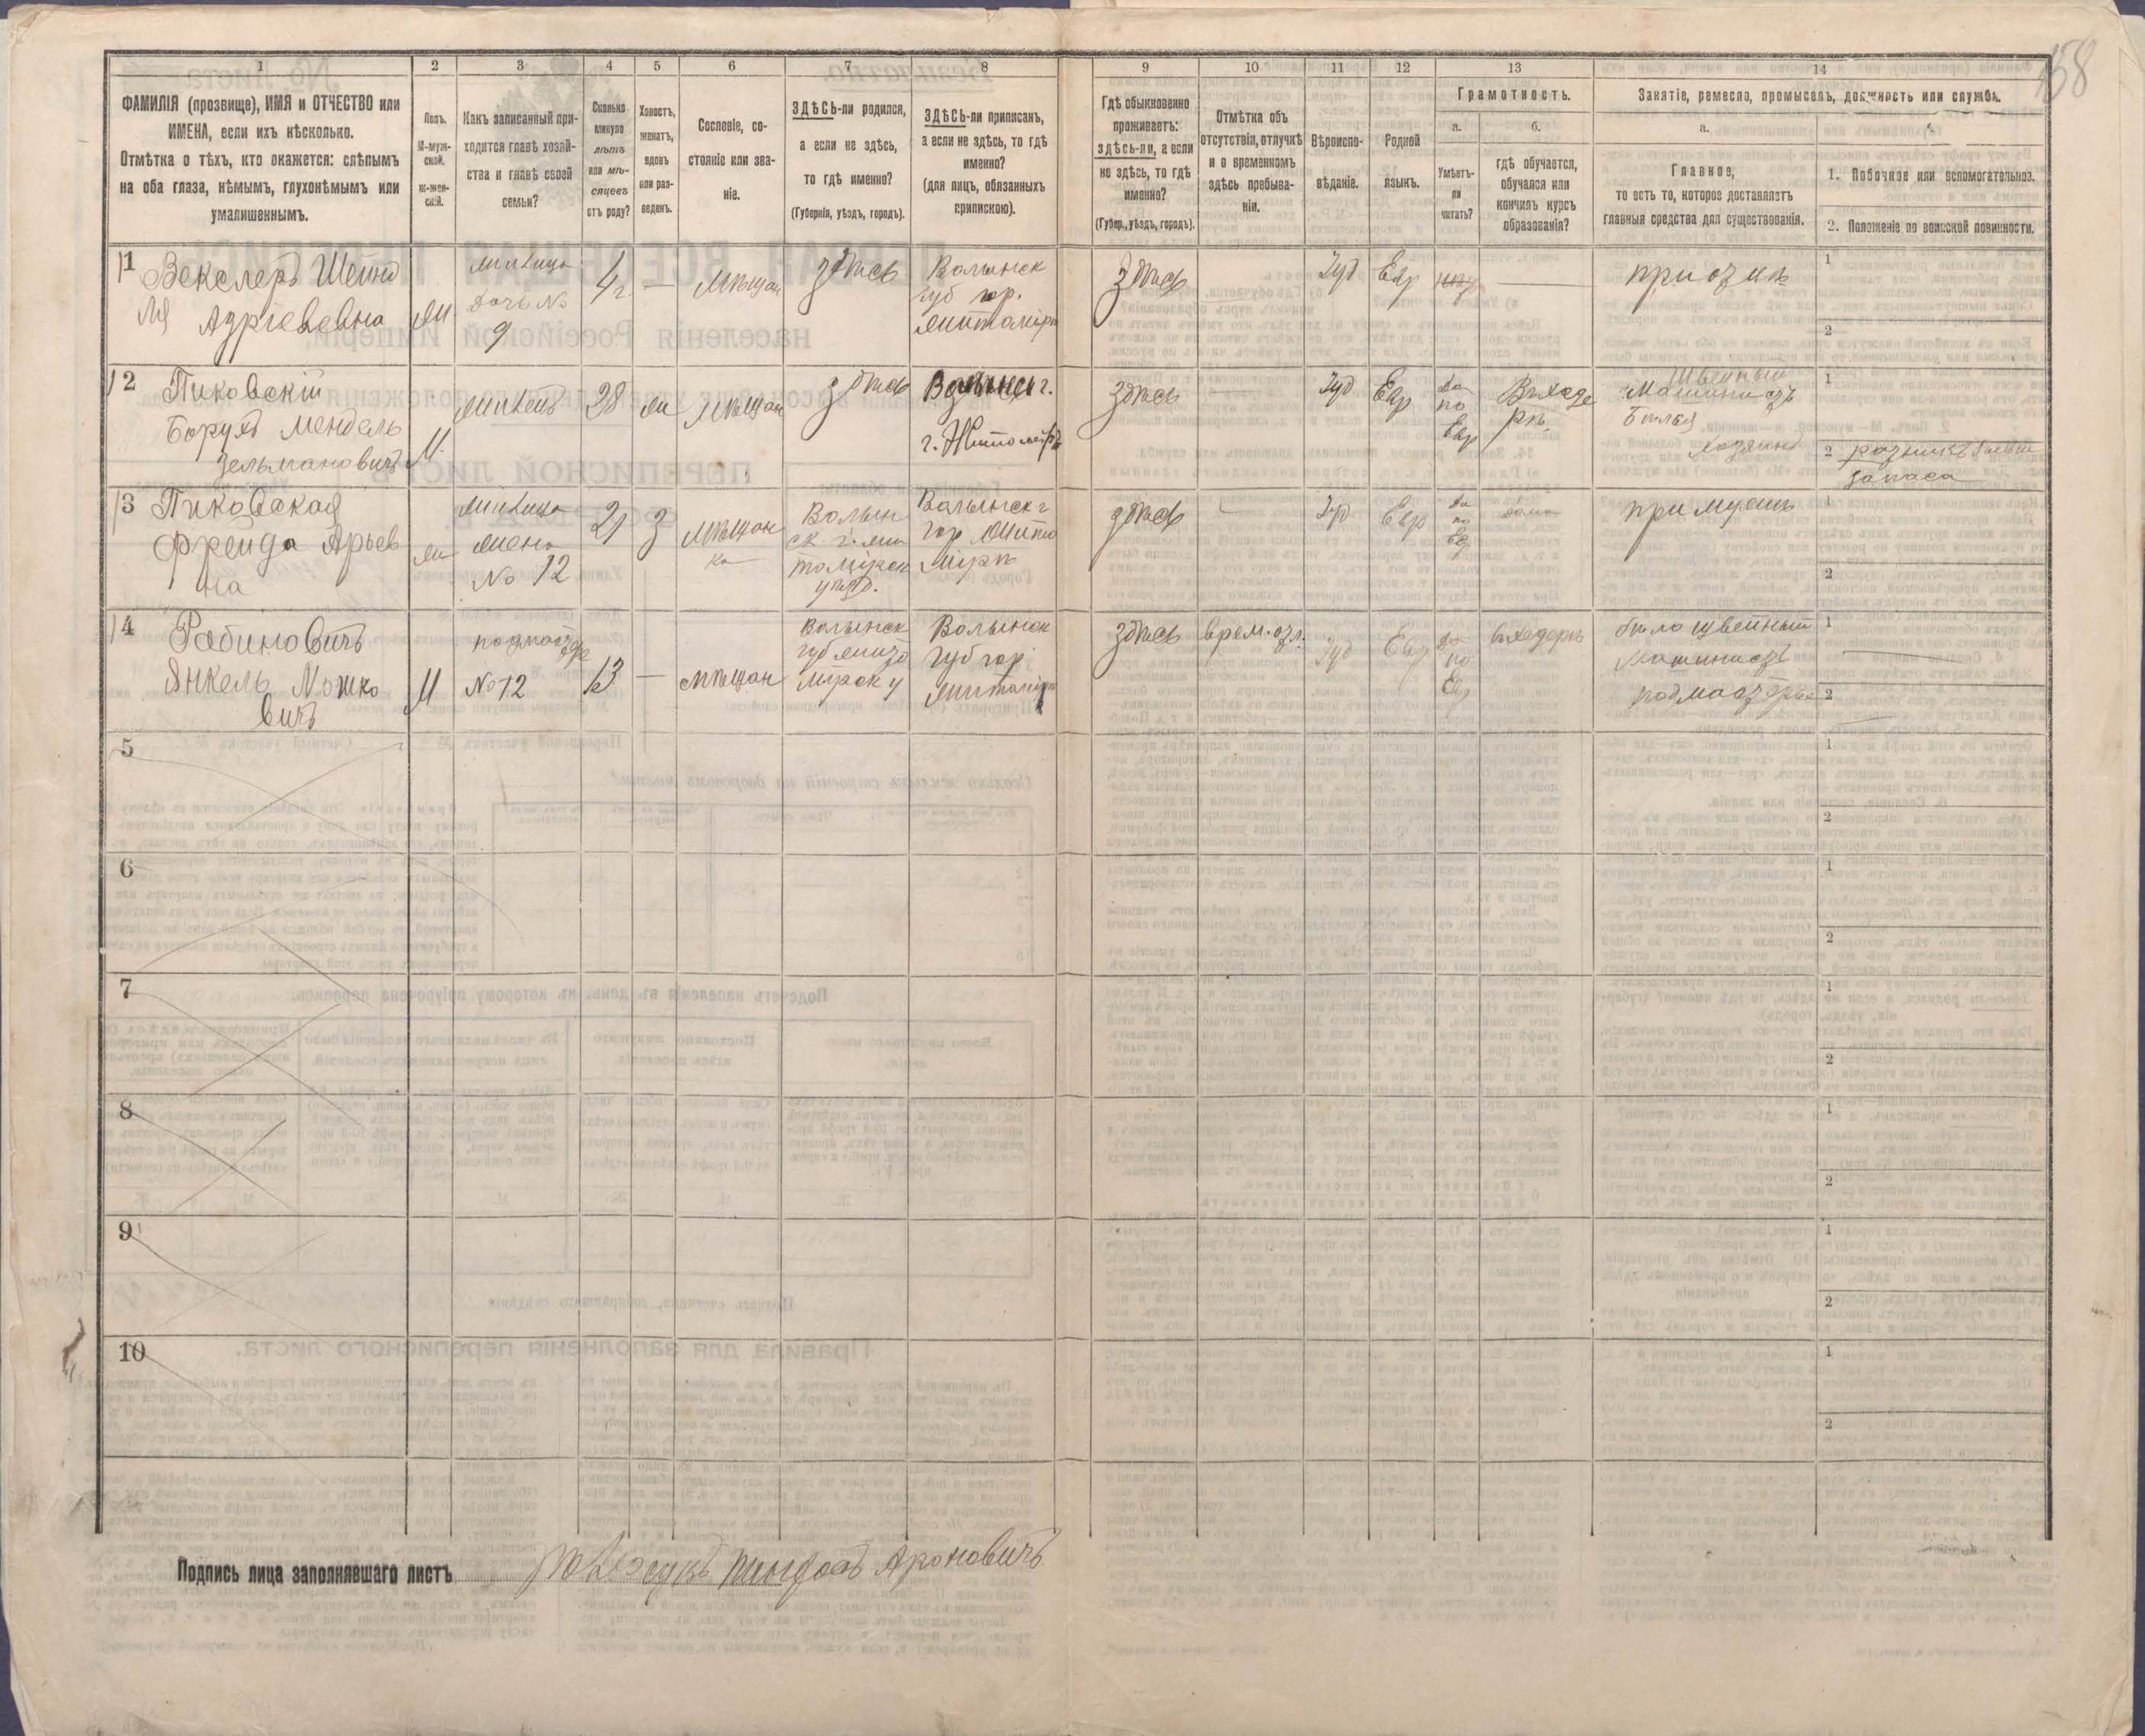 158
1
2
3
4
5
6
7
8
9
10
11
12
13
14
ФАМИЛІЯ (прозвище), ИМЯ и ОТЧЕСТВО или
ИМЕНА, если ихъ нѣсколько.
Отмѣтка о тѣхъ, кто окажется: слѣпымъ
на оба глаза, нѣмымъ, глухонѣмымъ или
умалишеннымъ.
Полъ.
М-муж-
ской.
ж-жен-
скій.
Какъ записанный при-
ходится главѣ хозяй-
ства и главѣ своей
семьи?
Сколько
минуло
лѣтъ
или мѣ-
сяцевъ
отъ роду?
Холостъ,
женатъ,
вдовъ
или раз-
веденъ.
Сословіе, со-
стояніе или зва-
ніе.
ЗДѢСЬ-ли родился,
а если не здѣсь,
то гдѣ именно?
(Губернія, уѣздъ, городъ).
ЗДѢСЬ-ли приписанъ,
а если не здѣсь, то гдѣ
именно?
(для лицъ, обязанныхъ
припискою).
Гдѣ обыкновенно
проживаетъ:
здѣсь-ли, а если
не здѣсь, то гдѣ
именно?
(Губер., уѣздъ, городъ).
Отмѣтка объ
отсутствіи, отлучкѣ
и о временномъ
здѣсь пребыва-
ніи.
Вѣроиспо-
вѣданіе.
Родной
языкъ.
Грамотность.
а.
Умѣетъ-
ли
читать?
б.
гдѣ обучается,
обучался или
кончилъ курсъ
образованія?
Занятіе, ремесло, промыселъ, должность или служба.
а.
Главное,
то есть то, которое доставляетъ
главныя средства для существованія.
1. Побочное или вспомогательное.
2. Положеніе по воинской повинности.
11
Векслеръ Шейнд
ля
жилица
дочь №
9
4 г.
—
Мѣщан
здѣсь
Волынск
губ гор.
Житомір
здѣсь
Іуд
Евр
—
при отцѣ
1
2
12
Пиковскій
Борухъ Мендель
Зельмановичъ
М.
жилецъ
28
ж
мѣщан
здѣсь
Волынск г.
г. Житоміръ
здѣсь
Іуд
Евр
да
по
Евр
В хаде
рѣ.
Швейный
машинистъ
бѣлья
хозяинъ
1
2
запаса
13
Пиковская
Фрейда Арьев
на
ж
жилица
жена
№ 12
21
З
мѣщан
ка
Волын
ск. г. жи
томірск
уѣзд.
Волынск г
гор Жито
мірѣ
здѣсь
—
Іуд
Евр
да
по
Ев
дома
при мужѣ
1
2
14
Рабиновичъ
Янкель Мошко
вичъ
М
№ 12
13
—
мѣщан
Волынск
губ жито
мірск у
Волынск
губ гор
Житомір
здѣсь
Іуд
Евр
да
по
Евр
в хадерѣ
бѣло швейный
машинистъ
подмастерье
1
2
5
1
2
6
1
2
7
1
2
8
1
2
9
1
2
10
1
2
Подпись лица заполнявшаго листъ
Ароновичъ